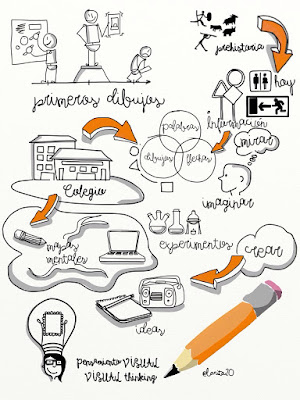 prehistoria
hoy
primeros dibujos
información
palabras
dibujos
flechas
mirar
imaginar
Colegio
mapas
mentales
experimentos
crear
ideas
pensamiento VISUAL
VISUAL thinking